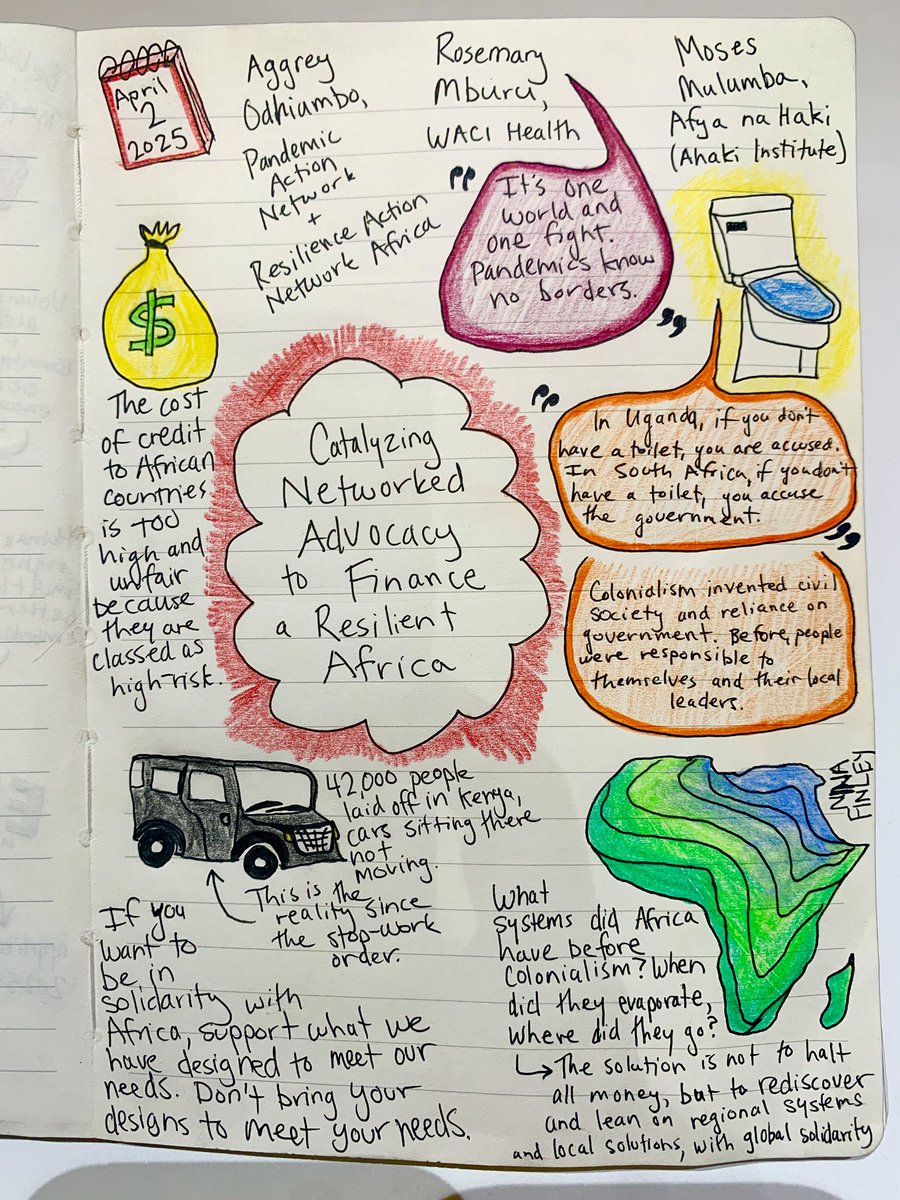 April
2
2025
Aggrey
Odhiambo,
Pandemic
Action
Network
+
Resilience Action
Network Africa
Rosemary
Mburu,
WACI Health
Moses
Mulumba,
Afya na Haki
(Ahaki Institute)
"It's one
world and
one fight.
Pandemics know
no borders."
$
The cost
of credit
to African
countries
is too
high and
unfair
because
they are
classed as
high-risk.
Catalyzing
Networked
Advocacy
to Finance
a Resilient
Africa
"In Uganda, if you don't
have a toilet, you are accused.
In South Africa, if you don't
have a toilet, you accuse
the government."
Colonialism invented civil
society and reliance on
government. Before, people
were responsible to
themselves and their local
leaders.
42,000 people
laid off in Kenya,
cars sitting there
not
moving.
This is the
reality since
the stop-work
order.
NINA
FINLEY
If you
want to
be in
solidarity with
Africa, support what we
have designed to meet our
needs. Don't bring your
designs to meet your needs.
What
systems did Africa
have before
colonialism? When
did they evaporate,
where did they go?
→ The solution is not to halt
all money, but to rediscover
and lean on regional systems
and local solutions, with global solidarity